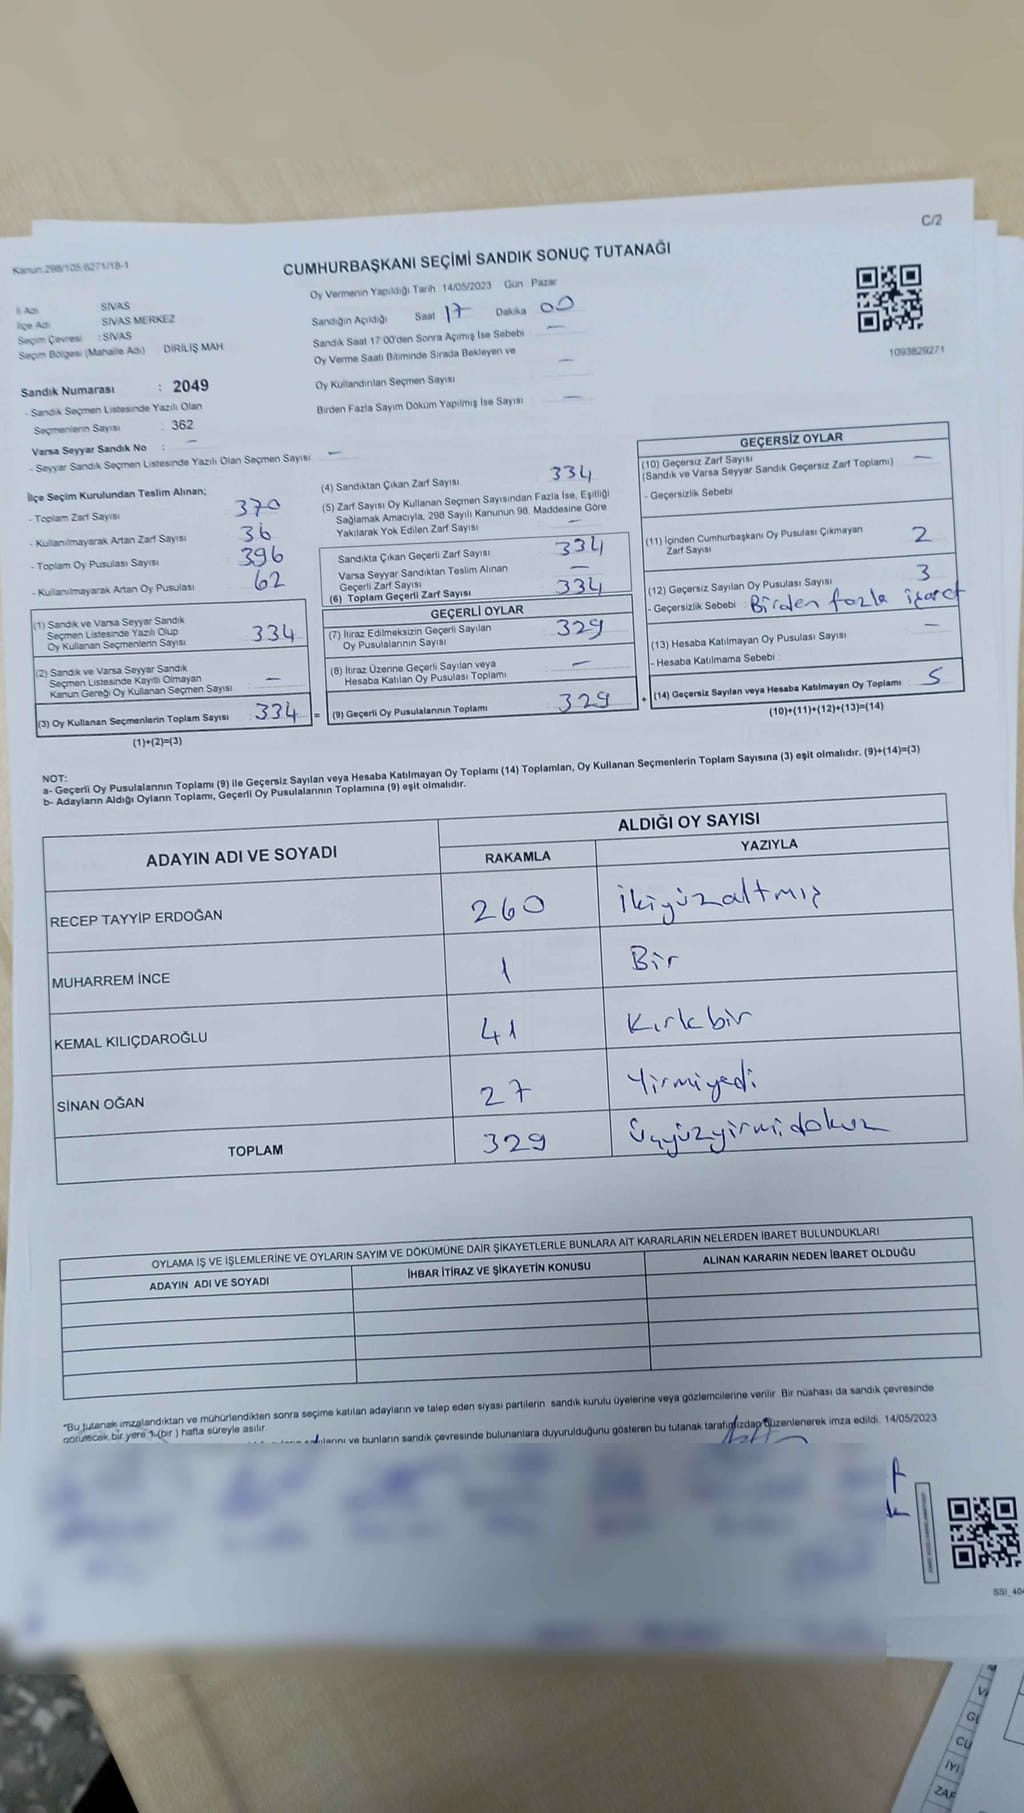 C/2
Kanun.298/105.6271/18-1
CUMHURBAŞKANI SEÇİMİ SANDIK SONUÇ TUTANAĞI
İl Adı SİVAS
İlçe Adı SİVAS MERKEZ
Seçim Çevresi : SİVAS
Seçim Bölgesi (Mahalle Adı) DİRİLİŞ MAH
Sandık Numarası : 2049
- Sandık Seçmen Listesinde Yazılı Olan
Seçmenlerin Sayısı : 362
Varsa Seyyar Sandık No : —
- Seyyar Sandık Seçmen Listesinde Yazılı Olan Seçmen Sayısı —
Oy Vermenin Yapıldığı Tarih 14/05/2023 Gün Pazar
Sandığın Açıldığı Saat 17 Dakika 00
Sandık Saat 17:00'den Sonra Açımış İse Sebebi —
Oy Verme Saati Bitiminde Sırada Bekleyen ve
Oy Kullandırılan Seçmen Sayısı —
Birden Fazla Sayım Döküm Yapılmış İse Sayısı —
1093829271
İlçe Seçim Kurulundan Teslim Alınan;
- Toplam Zarf Sayısı 370
- Kullanılmayarak Artan Zarf Sayısı 36
- Toplam Oy Pusulası Sayısı 396
- Kullanılmayarak Artan Oy Pusulası 62
(1) Sandık ve Varsa Seyyar Sandık
Seçmen Listesinde Yazılı Olup
Oy Kullanan Seçmenlerin Sayısı 334
(2) Sandık ve Varsa Seyyar Sandık
Seçmen Listesinde Kayıtlı Olmayan
Kanun Gereği Oy Kullanan Seçmen Sayısı —
(3) Oy Kullanan Seçmenlerin Toplam Sayısı 334 =
(1)+(2)=(3)
(4) Sandıktan Çıkan Zarf Sayısı 334
(5) Zarf Sayısı Oy Kullanan Seçmen Sayısından Fazla İse, Eşitliği
Sağlamak Amacıyla, 298 Sayılı Kanunun 98. Maddesine Göre
Yakılarak Yok Edilen Zarf Sayısı —
Sandıkta Çıkan Geçerli Zarf Sayısı 334
Varsa Seyyar Sandıktan Teslim Alınan
Geçerli Zarf Sayısı —
(6) Toplam Geçerli Zarf Sayısı 334
GEÇERLİ OYLAR
(7) İtiraz Edilmeksizin Geçerli Sayılan
Oy Pusulalarının Sayısı 329
(8) İtiraz Üzerine Geçerli Sayılan veya
Hesaba Katılan Oy Pusulası Toplamı —
(9) Geçerli Oy Pusulalarının Toplamı 329 +
GEÇERSİZ OYLAR
(10) Geçersiz Zarf Sayısı
(Sandık ve Varsa Seyyar Sandık Geçersiz Zarf Toplamı) —
- Geçersizlik Sebebi
(11) İçinden Cumhurbaşkanı Oy Pusulası Çıkmayan
Zarf Sayısı 2
(12) Geçersiz Sayılan Oy Pusulası Sayısı 3
- Geçersizlik Sebebi : Birden fazla işaret
(13) Hesaba Katılmayan Oy Pusulası Sayısı —
- Hesaba Katılmama Sebebi :
(14) Geçersiz Sayılan veya Hesaba Katılmayan Oy Toplamı 5
(10)+(11)+(12)+(13)=(14)
NOT:
a- Geçerli Oy Pusulalarının Toplamı (9) ile Geçersiz Sayılan veya Hesaba Katılmayan Oy Toplamı (14) Toplamları, Oy Kullanan Seçmenlerin Toplam Sayısına (3) eşit olmalıdır. (9)+(14)=(3)
b- Adayların Aldığı Oyların Toplamı, Geçerli Oy Pusulalarının Toplamına (9) eşit olmalıdır.
ADAYIN ADI VE SOYADI ALDIĞI OY SAYISI
RAKAMLA YAZIYLA
RECEP TAYYİP ERDOĞAN 260 İkiyüzaltmış
MUHARREM İNCE 1 Bir
KEMAL KILIÇDAROĞLU 41 Kırkbir
SİNAN OĞAN 27 Yirmiyedi
TOPLAM 329 Üçyüzyirmidokuz
OYLAMA İŞ VE İŞLEMLERİNE VE OYLARIN SAYIM VE DÖKÜMÜNE DAİR ŞİKAYETLERLE BUNLARA AİT KARARLARIN NELERDEN İBARET BULUNDUKLARI
ADAYIN ADI VE SOYADI İHBAR İTİRAZ VE ŞİKAYETİN KONUSU ALINAN KARARIN NEDEN İBARET OLDUĞU
"Bu tutanak imzalandıktan ve mühürlendikten sonra seçime katılan adayların ve talep eden siyasi partilerin sandık kurulu üyelerine veya gözlemcilerine verilir. Bir nüshası da sandık çevresinde
görülecek bir yere 1 (bir) hafta süreyle asılır.
ve bunların sandık çevresinde bulunanlara duyurulduğunu gösteren bu tutanak tarafımızdan düzenlenerek imza edildi. 14/05/2023